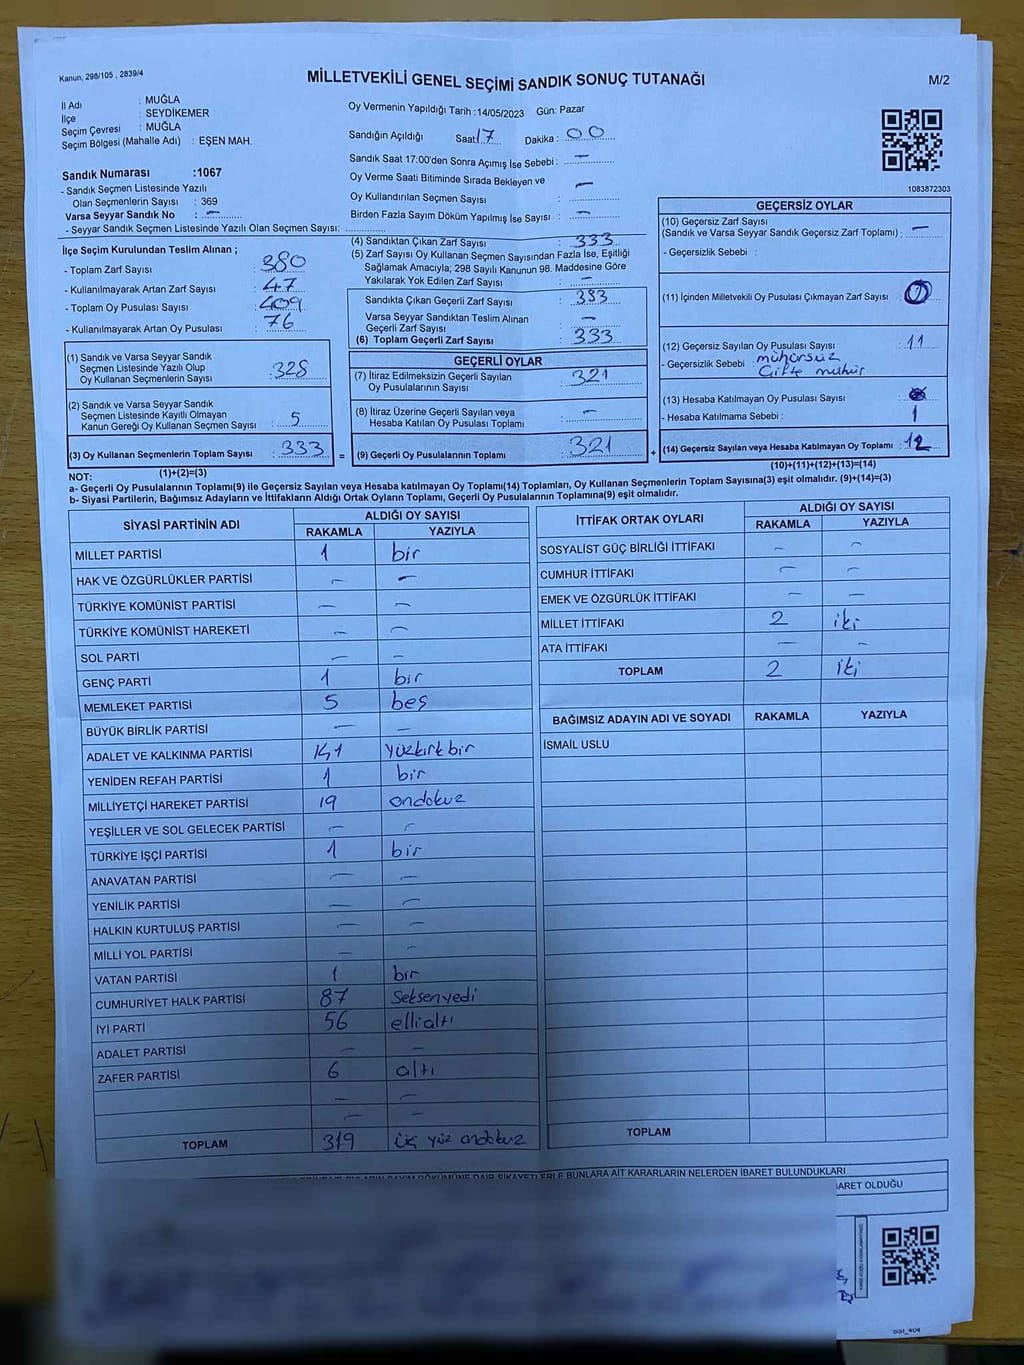 Kanun, 298/105 , 2839/4
MİLLETVEKİLİ GENEL SEÇİMİ SANDIK SONUÇ TUTANAĞI
M/2
İl Adı : MUĞLA
İlçe : SEYDİKEMER
Seçim Çevresi : MUĞLA
Seçim Bölgesi (Mahalle Adı) : EŞEN MAH.
Oy Vermenin Yapıldığı Tarih :14/05/2023 Gün: Pazar
Sandığın Açıldığı Saat 17 Dakika : 00
Sandık Saat 17:00'den Sonra Açımış İse Sebebi : –
Oy Verme Saati Bitiminde Sırada Bekleyen ve
Oy Kullandırılan Seçmen Sayısı : –
Birden Fazla Sayım Döküm Yapılmış İse Sayısı : –
1083872303
Sandık Numarası :1067
- Sandık Seçmen Listesinde Yazılı
Olan Seçmenlerin Sayısı : 369
Varsa Seyyar Sandık No : –
- Seyyar Sandık Seçmen Listesinde Yazılı Olan Seçmen Sayısı:
İlçe Seçim Kurulundan Teslim Alınan ;
- Toplam Zarf Sayısı : 380
- Kullanılmayarak Artan Zarf Sayısı : 47
- Toplam Oy Pusulası Sayısı : 409
- Kullanılmayarak Artan Oy Pusulası : 76
(1) Sandık ve Varsa Seyyar Sandık
Seçmen Listesinde Yazılı Olup
Oy Kullanan Seçmenlerin Sayısı : 328
(2) Sandık ve Varsa Seyyar Sandık
Seçmen Listesinde Kayıtlı Olmayan
Kanun Gereği Oy Kullanan Seçmen Sayısı : 5
(3) Oy Kullanan Seçmenlerin Toplam Sayısı : 333
(1)+(2)=(3)
(4) Sandıktan Çıkan Zarf Sayısı : 333
(5) Zarf Sayısı Oy Kullanan Seçmen Sayısından Fazla İse, Eşitliği
Sağlamak Amacıyla; 298 Sayılı Kanunun 98. Maddesine Göre
Yakılarak Yok Edilen Zarf Sayısı : –
Sandıkta Çıkan Geçerli Zarf Sayısı : 333
Varsa Seyyar Sandıktan Teslim Alınan
Geçerli Zarf Sayısı : –
(6) Toplam Geçerli Zarf Sayısı : 333
GEÇERLİ OYLAR
(7) İtiraz Edilmeksizin Geçerli Sayılan
Oy Pusulalarının Sayısı : 321
(8) İtiraz Üzerine Geçerli Sayılan veya
Hesaba Katılan Oy Pusulası Toplamı : –
= (9) Geçerli Oy Pusulalarının Toplamı : 321 +
GEÇERSİZ OYLAR
(10) Geçersiz Zarf Sayısı
(Sandık ve Varsa Seyyar Sandık Geçersiz Zarf Toplamı) : –
- Geçersizlik Sebebi :
(11) İçinden Milletvekili Oy Pusulası Çıkmayan Zarf Sayısı :
(12) Geçersiz Sayılan Oy Pusulası Sayısı : 11
- Geçersizlik Sebebi : mühürsüz
Çifte mühür
(13) Hesaba Katılmayan Oy Pusulası Sayısı :
- Hesaba Katılmama Sebebi : 1
(14) Geçersiz Sayılan veya Hesaba Katılmayan Oy Toplamı : 12
(10)+(11)+(12)+(13)=(14)
NOT:
a- Geçerli Oy Pusulalarının Toplamı(9) ile Geçersiz Sayılan veya Hesaba Katılmayan Oy Toplamı(14) Toplamları, Oy Kullanan Seçmenlerin Toplam Sayısına(3) eşit olmalıdır. (9)+(14)=(3)
b- Siyasi Partilerin, Bağımsız Adayların ve İttifakların Aldığı Ortak Oyların Toplamı, Geçerli Oy Pusulalarının Toplamına(9) eşit olmalıdır.
SİYASİ PARTİNİN ADI ALDIĞI OY SAYISI
RAKAMLA YAZIYLA
MİLLET PARTİSİ 1 bir
HAK VE ÖZGÜRLÜKLER PARTİSİ – –
TÜRKİYE KOMÜNİST PARTİSİ – –
TÜRKİYE KOMÜNİST HAREKETİ – –
SOL PARTİ – –
GENÇ PARTİ 1 bir
MEMLEKET PARTİSİ 5 beş
BÜYÜK BİRLİK PARTİSİ – –
ADALET VE KALKINMA PARTİSİ 141 yüzkırkbir
YENİDEN REFAH PARTİSİ 1 bir
MİLLİYETÇİ HAREKET PARTİSİ 19 ondokuz
YEŞİLLER VE SOL GELECEK PARTİSİ – –
TÜRKİYE İŞÇİ PARTİSİ 1 bir
ANAVATAN PARTİSİ – –
YENİLİK PARTİSİ – –
HALKIN KURTULUŞ PARTİSİ – –
MİLLİ YOL PARTİSİ – –
VATAN PARTİSİ 1 bir
CUMHURİYET HALK PARTİSİ 87 Seksenyedi
İYİ PARTİ 56 ellialtı
ADALET PARTİSİ – –
ZAFER PARTİSİ 6 altı
– –
– –
TOPLAM 319 üç yüz ondokuz
İTTİFAK ORTAK OYLARI ALDIĞI OY SAYISI
RAKAMLA YAZIYLA
SOSYALİST GÜÇ BİRLİĞİ İTTİFAKI – –
CUMHUR İTTİFAKI – –
EMEK VE ÖZGÜRLÜK İTTİFAKI – –
MİLLET İTTİFAKI 2 iki
ATA İTTİFAKI – –
TOPLAM 2 iki
BAĞIMSIZ ADAYIN ADI VE SOYADI RAKAMLA YAZIYLA
İSMAİL USLU
TOPLAM
DÖKÜMÜNE DAİR ŞİKAYETLER İLE BUNLARA AİT KARARLARIN NELERDEN İBARET BULUNDUKLARI
İBARET OLDUĞU